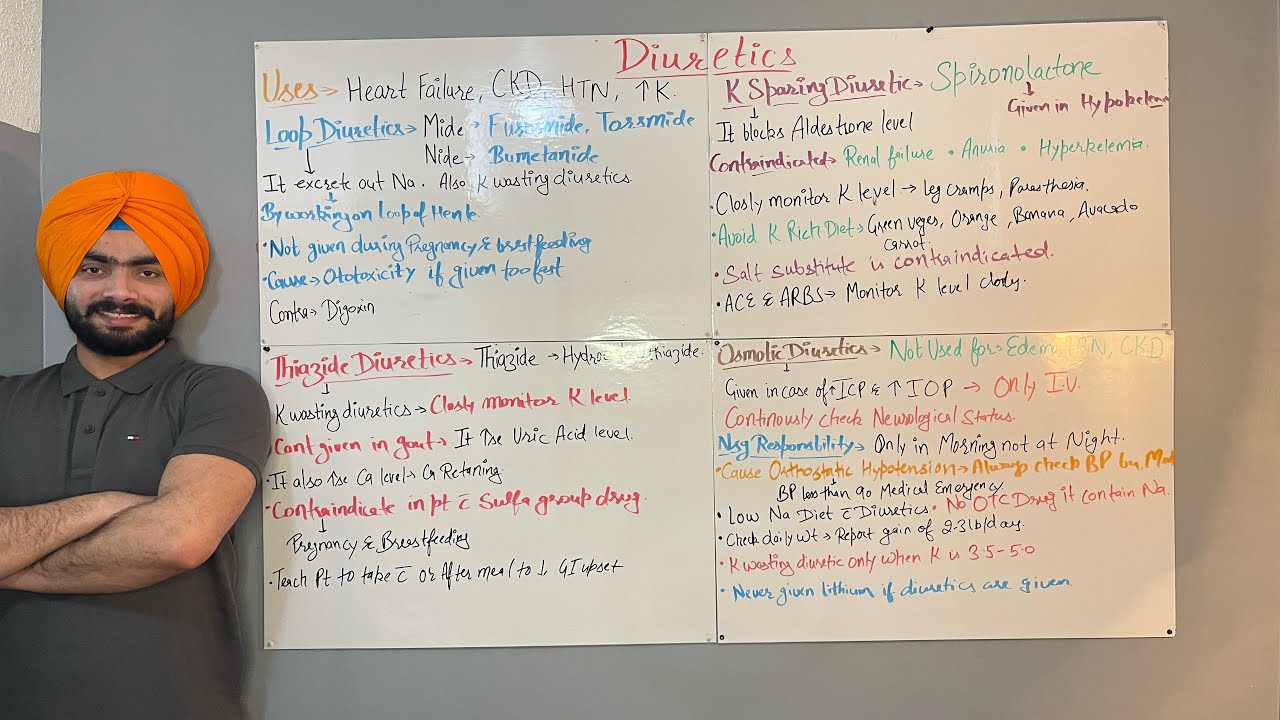 Diuretics
Uses → Heart Failure, CKD, HTN, ↑K.
Loop Diuretics → Mide → Furosmide, Torsmide
Nide → Bumetanide
It excrete out Na. Also K wasting diuretics.
By working on loop of Henle
• Not given during Pregnancy & brestfeeding
• Cause → Ototoxicity if given too fast
Contra → Digoxin
K Sparing Diuretic → Spironolactone
Given in Hypokelem
It blocks Aldestrone level
Contraindicated → Renal failure • Anuria • Hyperkelemia.
• Closly monitor K level → leg cramps, Parasthasia.
• Avoid K Rich Diet → Green veges, Orange, Banana, Avacado
carrot.
• Salt substitute is contraindicated.
• ACE & ARBS → Monitor K level closly.
Thiazide Diuretics → Thiazide → thiazide.
K wasting diuretics → Closly monitor K level.
Cant given in gout → It ↑se Uric Acid level.
• It also ↑se Ca level → Ca Retaning
• Contraindicate in pt c̄ Sulfa group drug.
Pregnancy & Breastfeeding
• Teach Pt to take c̄ or After meal to ↓ GI upset
Osmolic Diuretics → Not Used for → Edema, HTN, CKD
Given in case of ↑ICP & ↑IOP → Only I.V.
Continously check Neurological Status.
Nsg Responsbility → Only in Morning not at Night.
• Cause Orthostatic Hypotension → Always check BP
BP less than 90 Medical Emergency
• Low Na Diet c̄ Diuretics • No OTC Drug it contain Na.
• Check daily Wt → Report gain of 2-3 lb/day.
• K wasting diuretic only when K is 3.5-5.0
• Never given lithium if diuretics are given.